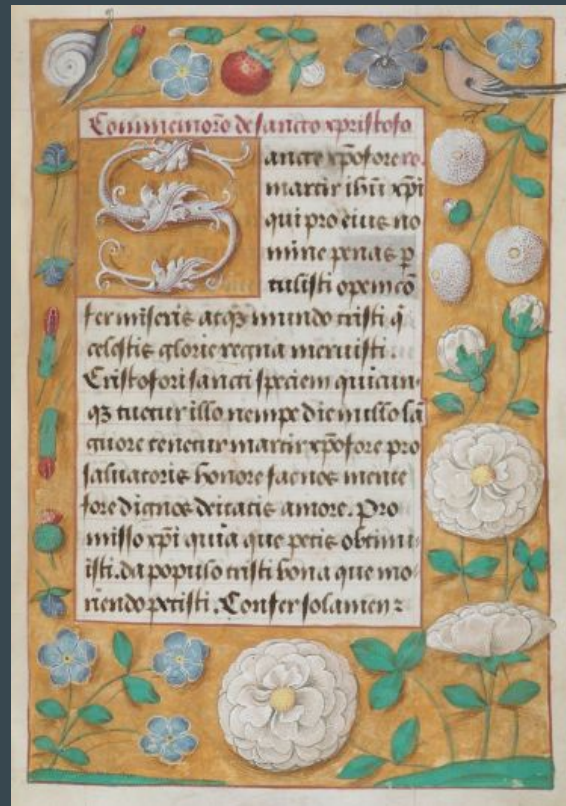 Commemoro de sancto xpristofo
Sancte xpofore
martir ihu xpi
qui pro eius no
mine penas p
tulisti opem co
fer miseris atqz mundo tristi q
celestis glorie regna meruisti.
Cristofori sancti speciem quicun
qz tuetur illo nempe die nullo la
guore tenetur martir xpofore pro
saluatoris honore fac nos mente
fore dignos deitatis amore. Pro
misso xpi quia que petis obtinu
isti. da populo tristi bona que mo
riendo petisti. Confer solamen z